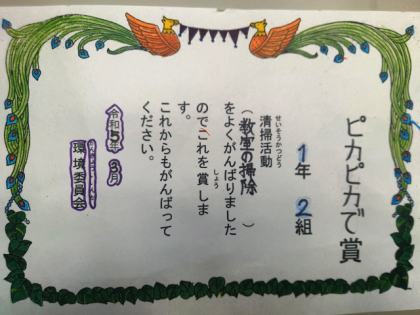 ピカピカで賞
1年 2組
せいそうかつどう
清掃活動
(教室の掃除)
をよくがんばりました
のでこれを賞しま
しょう
す。
これからもがんばって
ください。
令和5年3月
環境委員会